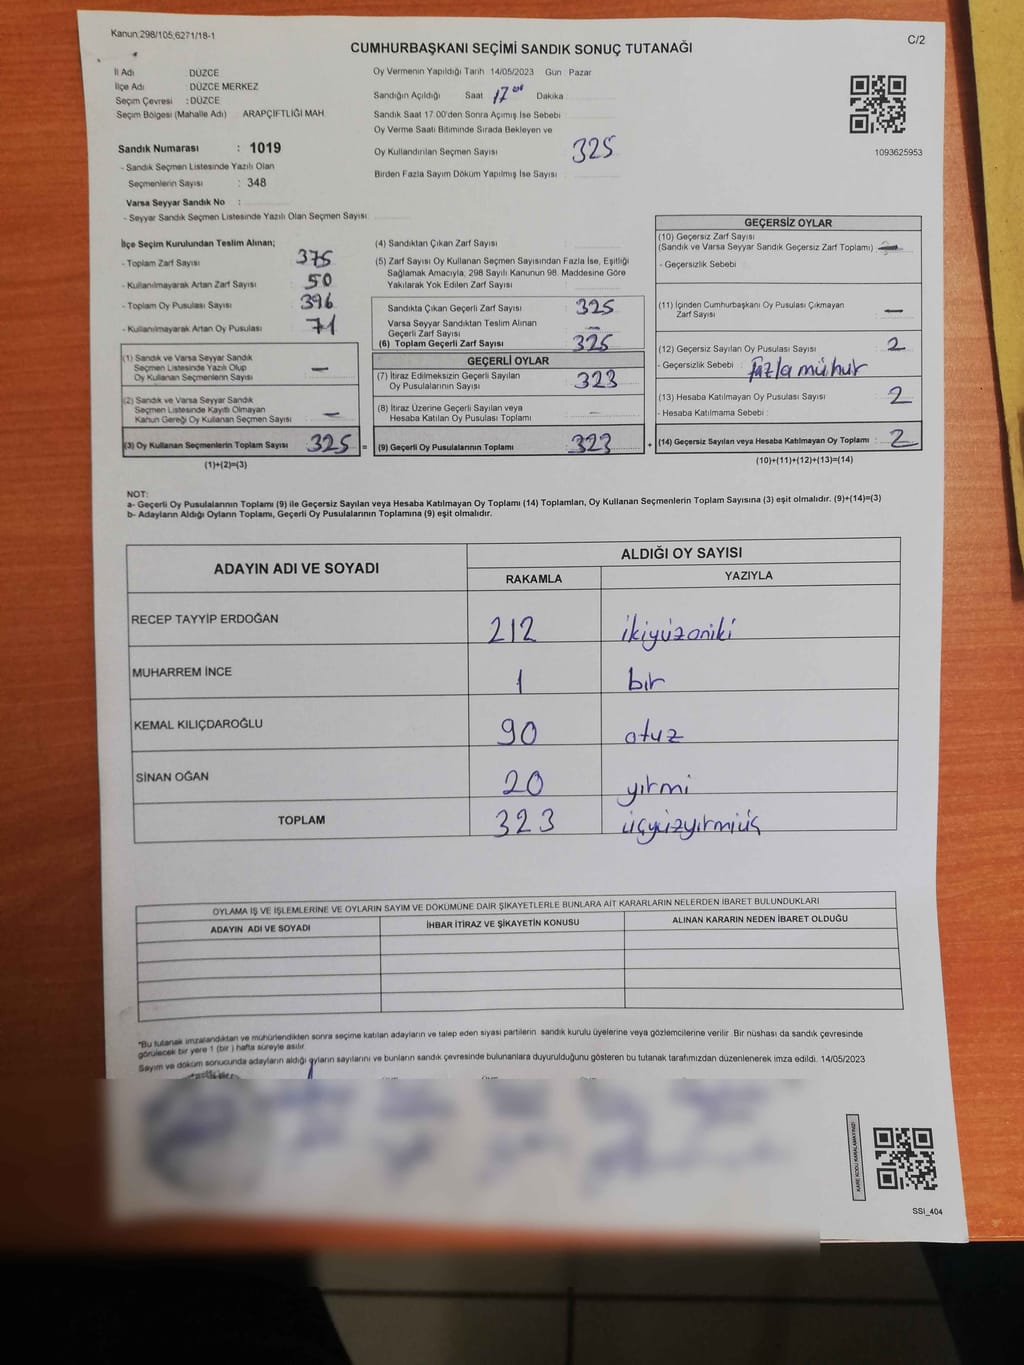 Kanun:298/105,6271/18-1
C/2
CUMHURBAŞKANI SEÇİMİ SANDIK SONUÇ TUTANAĞI
İl Adı DÜZCE
İlçe Adı DÜZCE MERKEZ
Seçim Çevresi : DÜZCE
Seçim Bölgesi (Mahalle Adı) ARAPÇİFTLİĞİ MAH.
Sandık Numarası : 1019
- Sandık Seçmen Listesinde Yazılı Olan
Seçmenlerin Sayısı : 348
Varsa Seyyar Sandık No :
- Seyyar Sandık Seçmen Listesinde Yazılı Olan Seçmen Sayısı
Oy Vermenin Yapıldığı Tarih 14/05/2023 Gün Pazar
Sandığın Açıldığı Saat 17 00 Dakika
Sandık Saat 17.00'den Sonra Açımış İse Sebebi
Oy Verme Saati Bitiminde Sırada Bekleyen ve
Oy Kullandırılan Seçmen Sayısı 325
Birden Fazla Sayım Döküm Yapılmış İse Sayısı
1093625953
İlçe Seçim Kurulundan Teslim Alınan;
- Toplam Zarf Sayısı 375
- Kullanılmayarak Artan Zarf Sayısı 50
- Toplam Oy Pusulası Sayısı 396
- Kullanılmayarak Artan Oy Pusulası 71
(1) Sandık ve Varsa Seyyar Sandık
Seçmen Listesinde Yazılı Olup
Oy Kullanan Seçmenlerin Sayısı —
(2) Sandık ve Varsa Seyyar Sandık
Seçmen Listesinde Kayıtlı Olmayan
Kanun Gereği Oy Kullanan Seçmen Sayısı —
(3) Oy Kullanan Seçmenlerin Toplam Sayısı 325 =
(1)+(2)=(3)
(4) Sandıktan Çıkan Zarf Sayısı
(5) Zarf Sayısı Oy Kullanan Seçmen Sayısından Fazla İse, Eşitliği
Sağlamak Amacıyla, 298 Sayılı Kanunun 98. Maddesine Göre
Yakılarak Yok Edilen Zarf Sayısı
Sandıkta Çıkan Geçerli Zarf Sayısı 325
Varsa Seyyar Sandıktan Teslim Alınan
Geçerli Zarf Sayısı —
(6) Toplam Geçerli Zarf Sayısı 325
GEÇERLİ OYLAR
(7) İtiraz Edilmeksizin Geçerli Sayılan
Oy Pusulalarının Sayısı 323
(8) İtiraz Üzerine Geçerli Sayılan veya
Hesaba Katılan Oy Pusulası Toplamı —
(9) Geçerli Oy Pusulalarının Toplamı 323 +
GEÇERSİZ OYLAR
(10) Geçersiz Zarf Sayısı
(Sandık ve Varsa Seyyar Sandık Geçersiz Zarf Toplamı) —
- Geçersizlik Sebebi
(11) İçinden Cumhurbaşkanı Oy Pusulası Çıkmayan
Zarf Sayısı —
(12) Geçersiz Sayılan Oy Pusulası Sayısı 2
- Geçersizlik Sebebi : fazla mühür
(13) Hesaba Katılmayan Oy Pusulası Sayısı 2
- Hesaba Katılmama Sebebi :
(14) Geçersiz Sayılan veya Hesaba Katılmayan Oy Toplamı : 2
(10)+(11)+(12)+(13)=(14)
NOT:
a- Geçerli Oy Pusulalarının Toplamı (9) ile Geçersiz Sayılan veya Hesaba Katılmayan Oy Toplamı (14) Toplamları, Oy Kullanan Seçmenlerin Toplam Sayısına (3) eşit olmalıdır. (9)+(14)=(3)
b- Adayların Aldığı Oyların Toplamı, Geçerli Oy Pusulalarının Toplamına (9) eşit olmalıdır.
ADAYIN ADI VE SOYADI ALDIĞI OY SAYISI
RAKAMLA YAZIYLA
RECEP TAYYİP ERDOĞAN 212 ikiyüzoniki
MUHARREM İNCE 1 bir
KEMAL KILIÇDAROĞLU 90 otuz
SİNAN OĞAN 20 yirmi
TOPLAM 323 üçyüzyirmiüç
OYLAMA İŞ VE İŞLEMLERİNE VE OYLARIN SAYIM VE DÖKÜMÜNE DAİR ŞİKAYETLERLE BUNLARA AİT KARARLARIN NELERDEN İBARET BULUNDUKLARI
ADAYIN ADI VE SOYADI İHBAR İTİRAZ VE ŞİKAYETİN KONUSU ALINAN KARARIN NEDEN İBARET OLDUĞU
*Bu tutanak imzalandıktan ve mühürlendikten sonra seçime katılan adayların ve talep eden siyasi partilerin sandık kurulu üyelerine veya gözlemcilerine verilir .Bir nüshası da sandık çevresinde
görülecek bir yere 1 (bir ) hafta süreyle asılır.
Sayım ve döküm sonucunda adayların aldığı oyların sayılarını ve bunların sandık çevresinde bulunanlara duyurulduğunu gösteren bu tutanak tarafımızdan düzenlenerek imza edildi. 14/05/2023
KARE KODU KARALAMAYINIZ!
SSI_404